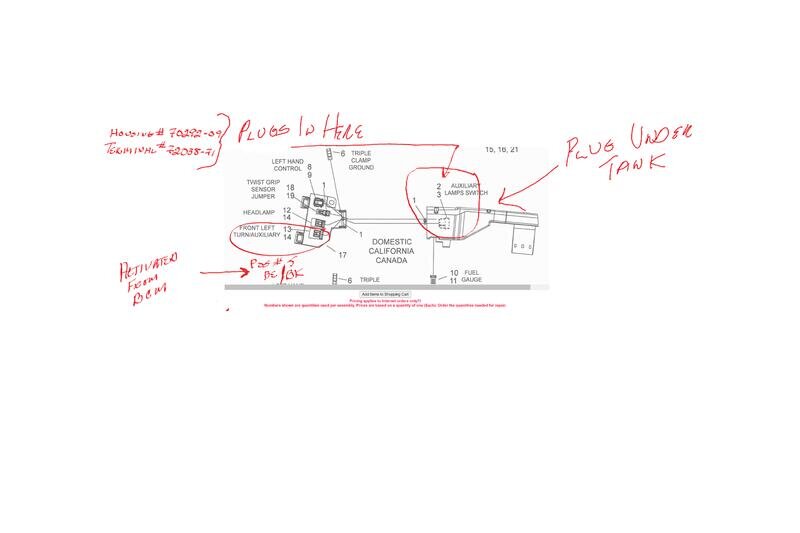 HOUSING # 70292-09
TERMINAL # 72038-71
PLUGS IN HERE
PLUG UNDER
TANK
15, 16, 21
6 TRIPLE
CLAMP
GROUND
LEFT HAND
CONTROL
8
9
1
TWIST GRIP
SENSOR
JUMPER
18
19
HEADLAMP
12
14
FRONT LEFT
TURN/AUXILIARY
13
14
17
1
2
3
AUXILIARY
LAMPS SWITCH
1
DOMESTIC
CALIFORNIA
CANADA
POS # 5
BE/BK
ACTIVATED
FROM
BCM
6 TRIPLE
10 FUEL
11 GAUGE
Add Items to Shopping Cart
Pricing applies to Internet orders only!!!
Numbers shown are quantities used per assembly. Prices are based on a quantity of one (Each). Order the quantities needed for repair.